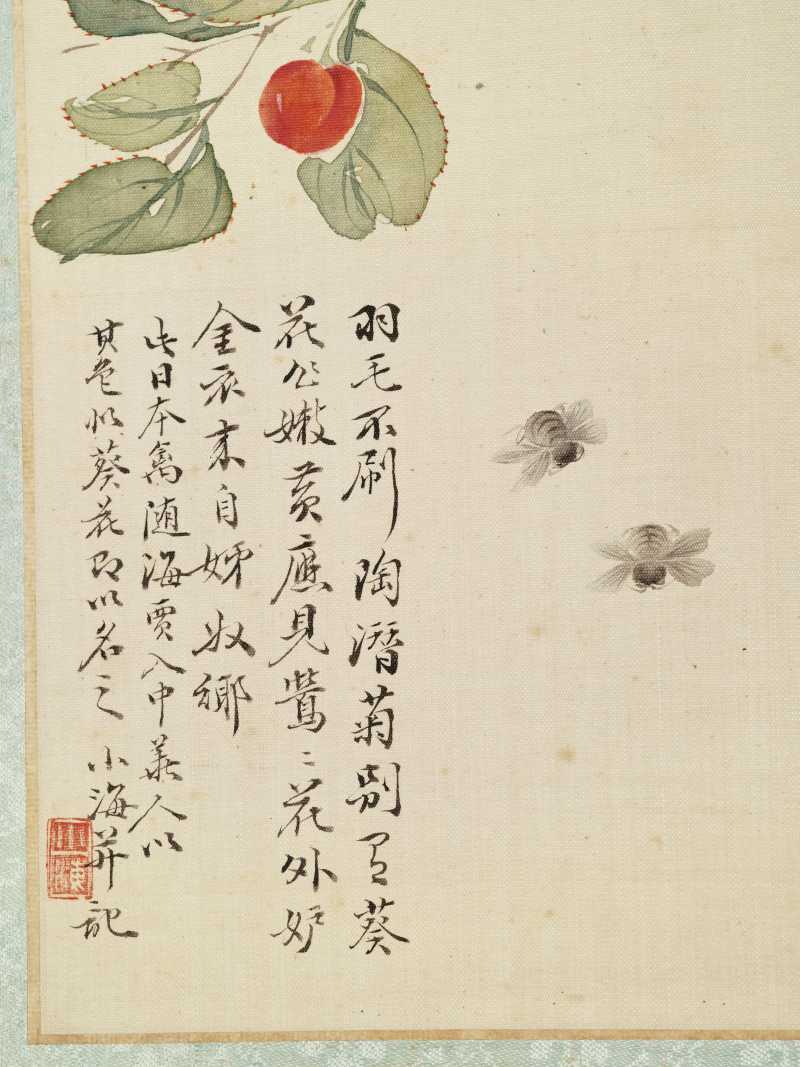 羽毛不刷陶潛菊別有葵
花分嫩黃應見鶯〻花外妒
金衣来自姊奴鄉
此日本禽随海賈入中華人以
其色似葵花即以名之 小海并記